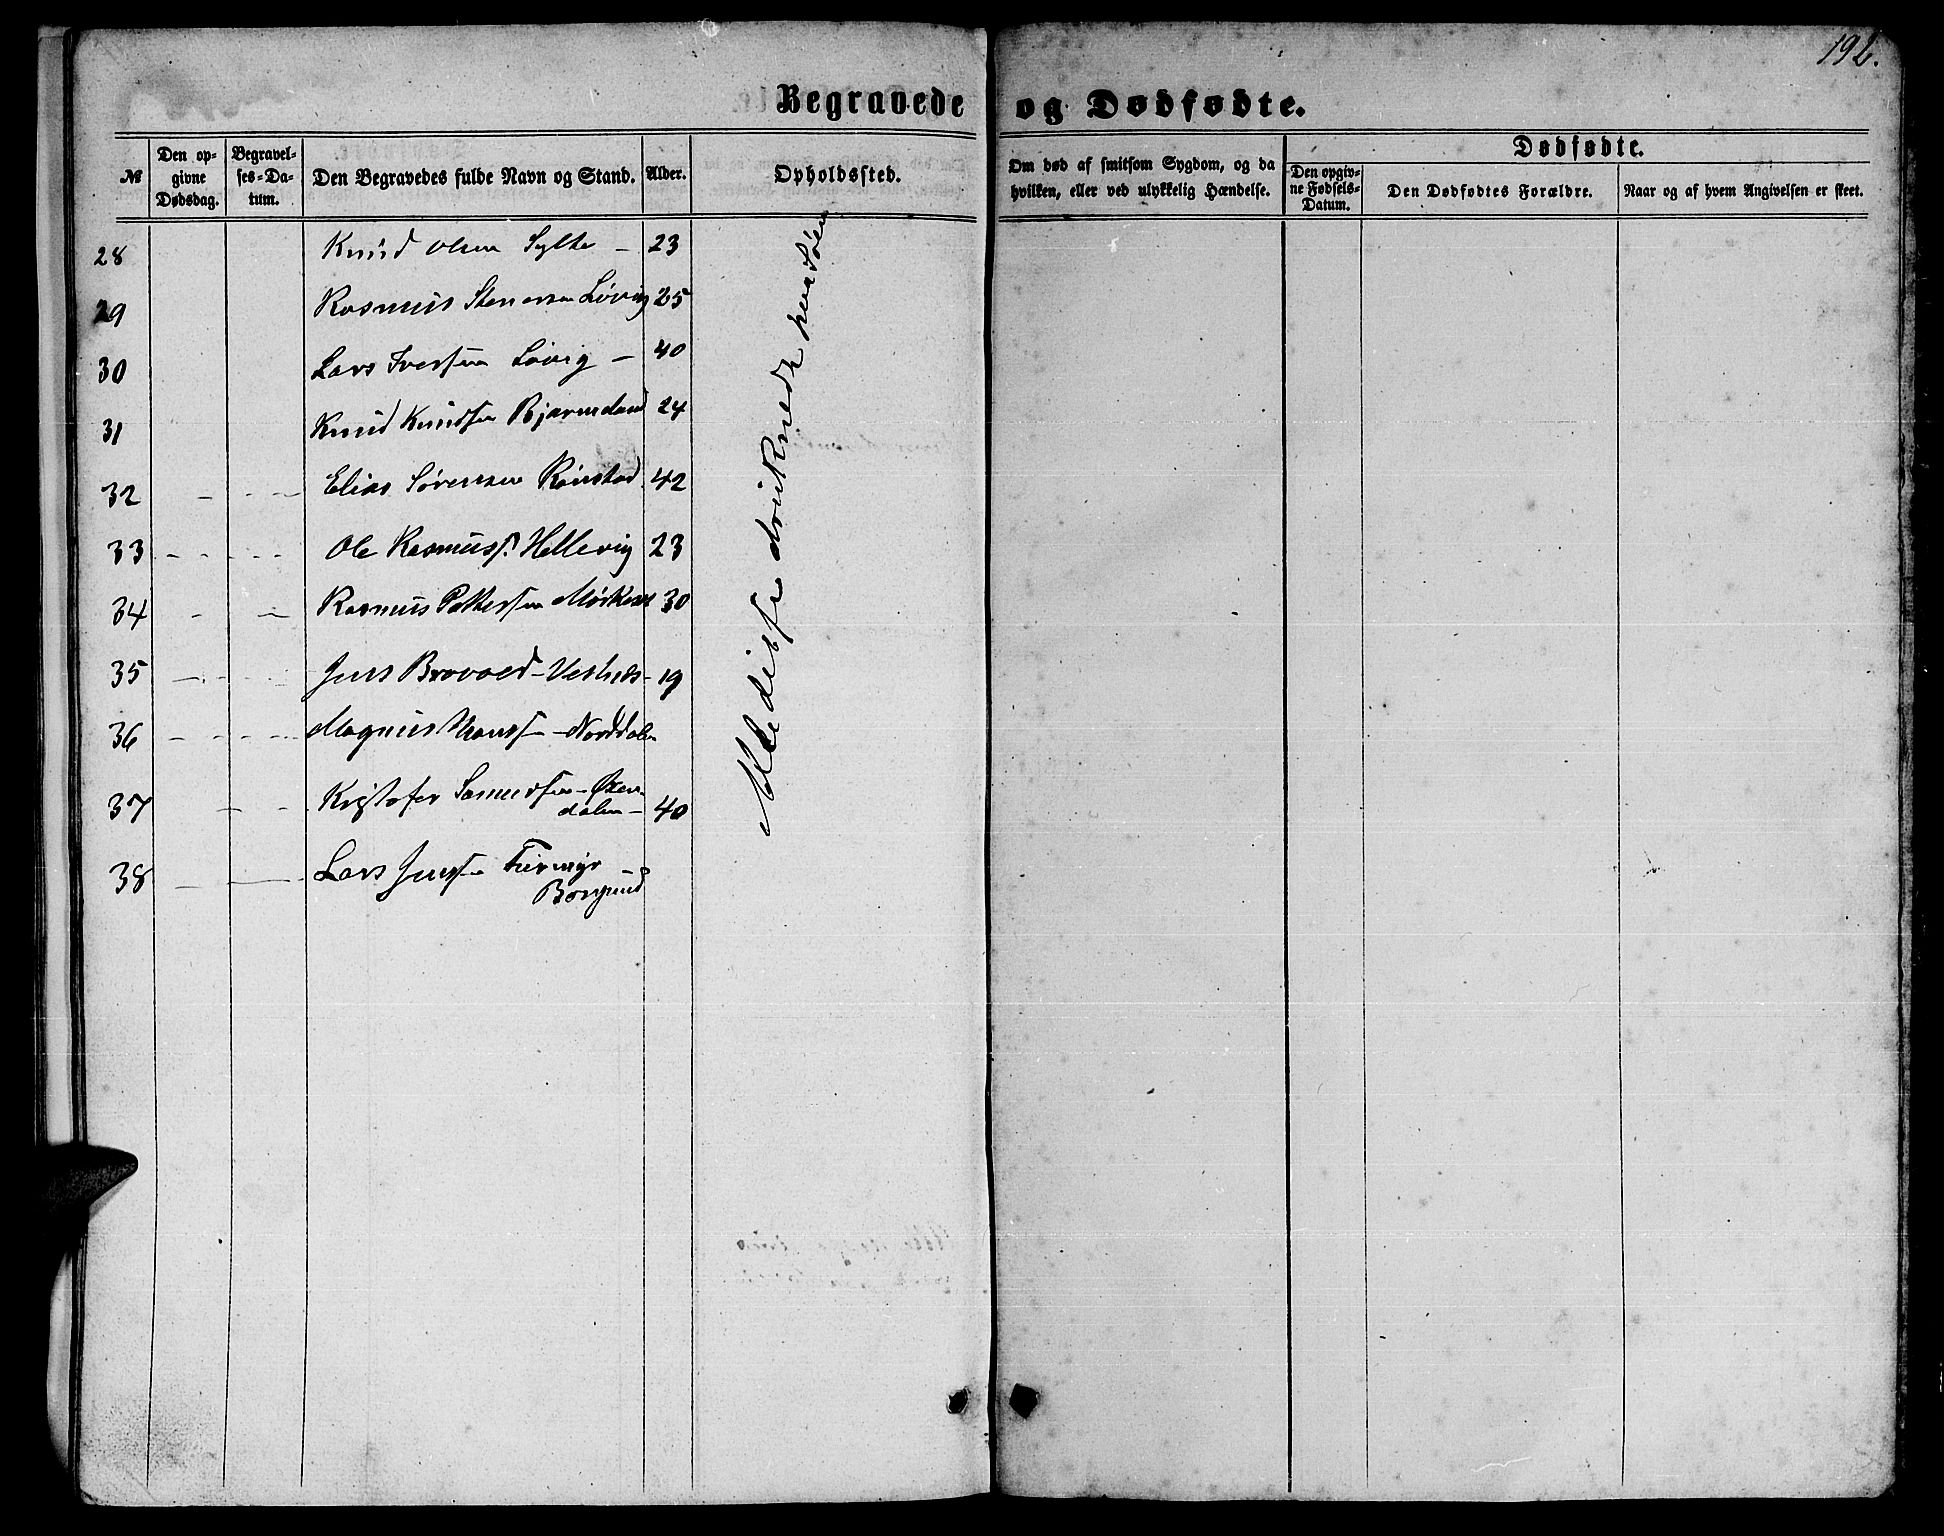 192.
Begravede og Dødfødte.
№
Den op-
givne
Dødsdag.
Begravel-
ses-Da-
tum.
Den Begravedes fulde Navn og Stand.
Alder.
Opholdssted.
Om død af smitsom Sygdom, og da
hvilken, eller ved ulykkelig Hændelse.
Dødfødte.
Den opgiv-
ne Fødsels-
Datum.
Den Dødfødtes Forældre.
Naar og af hvem Angivelsen er skeet.
28 Knud Olsen Sylte – 23
29 Rasmus Stenersen Løvig 25
30 Lars Iversen Løvig – 40
31 Knud Knudsen Bjørndand 24
32 Elias Sørensen Rønstad 42
33 Ole Rasmuss. Hellevig 23
34 Rasmus Pettersen Mørkeset 30
35 Jens Brovold – Vestnes – 19
36 Magnus Hanssen – Norddalen
37 Kristofer Samuelsen – Øxen-
dalen – 40
38 Lars Jenssen –
Borgund
Alle disse druknede paa Søen